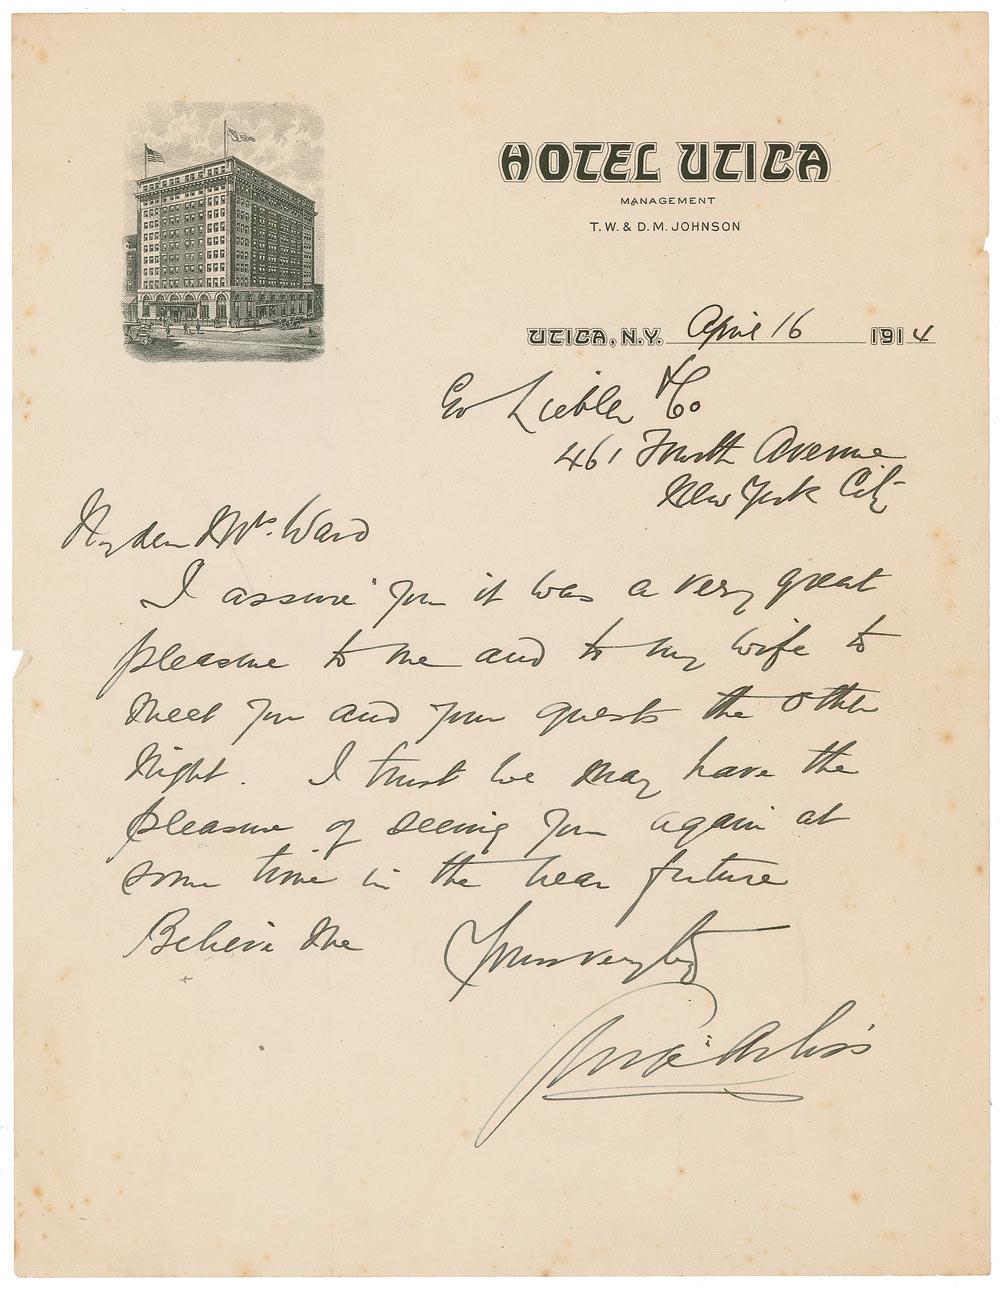 HOTEL UTICA
MANAGEMENT
T. W. & D. M. JOHNSON
UTICA, N.Y. April 16 1914
Liebler & Co
461 Fourth Avenue
New York City
My dear Mrs. Ward
I assure you it was a very great
pleasure to me and to my wife to
meet you and your guests the other
night. I trust we may have the
pleasure of seeing you again at
some time in the near future
Believe me Yours very truly
George Arliss